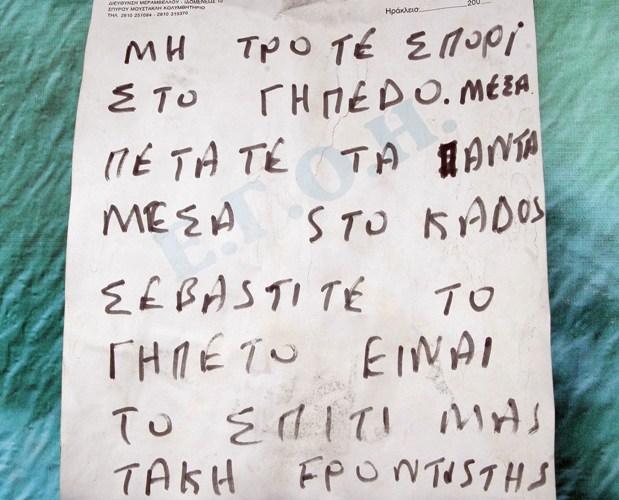 ΔΙΕΥΘΥΝΣΗ ΜΕΡΑΜΒΕΛΛΟΥ - ΙΔΟΜΕΝΕΩΣ 10
ΣΠΥΡΟΥ ΜΟΥΣΤΑΚΛΗ ΚΟΛΥΜΒΗΤΗΡΙΟ
ΤΗΛ. 2810 251084 - 2810 315370
Ηράκλειο 200
ΜΗ ΤΡΟ ΤΕ ΣΠΟΡΙ
ΣΤΟ ΓΗΠΕDΟ. ΜΕΣΑ
ΠΕΤΑΤΕ ΤΑ ΠΑΝΤΑ
ΜΕΣΑ SΤΟ ΚΑDΟS
ΣΕΒΑSΤΙΤΕ ΤΟ
ΓΗΠΕΤΟ ΕΙΝΑΙ
ΤΟ ΣΠΙΤΙ ΜΑS
ΤΑΚΗ FΡΟΝΤΙSΤΗS
Ε.Γ.Ο.Η.